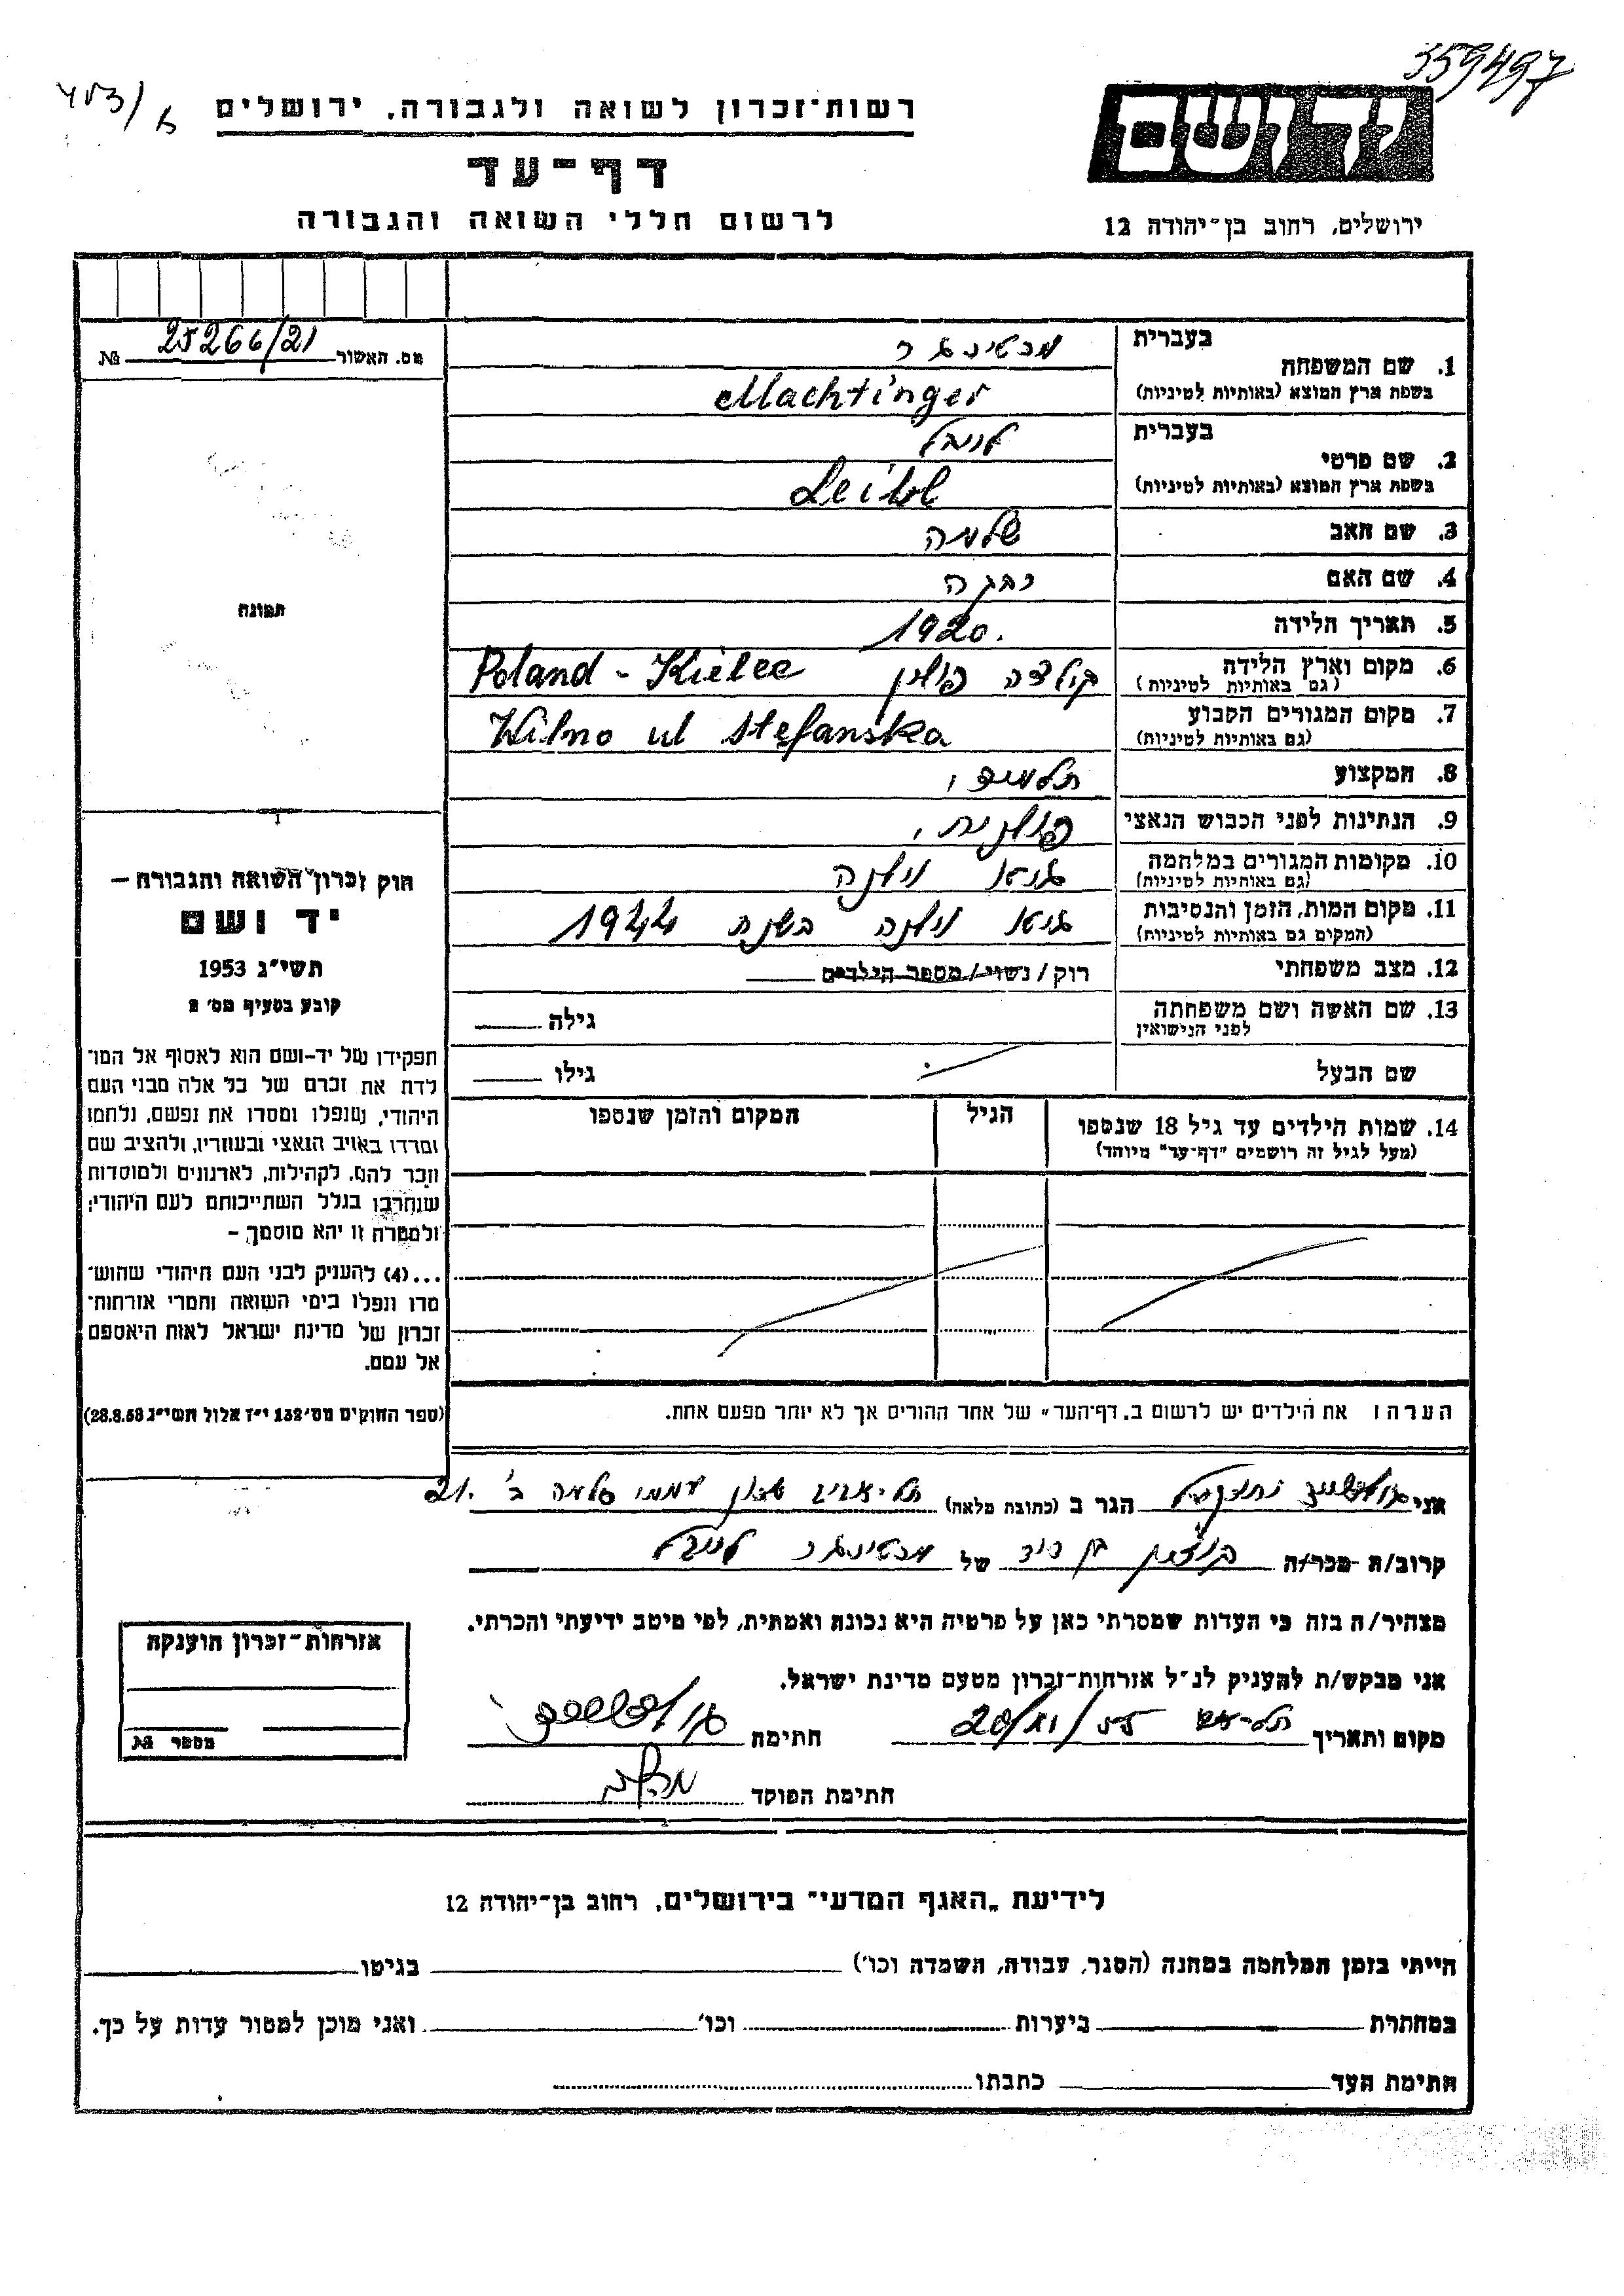 359497
רשות-זכרון לשואה ולגבורה, ירושלים
יד ושם
דף-עד
לרשום חללי השואה והגבורה
ירושלים, רחוב בן-יהודה 12
מס. האשור 25266/21 №
1. שם המשפחה
בעברית מכטינגר
בשפת ארץ המוצא (באותיות לטיניות) Machtinger
2. שם פרטי
בעברית לייבל
בשפת ארץ המוצא (באותיות לטיניות) Leibl
3. שם האב שלמה
4. שם האם
5. תאריך הלידה 1920.
6. מקום וארץ הלידה (גם באותיות לטיניות) קילצה פולין Poland - Kielce
7. מקום המגורים הקבוע (גם באותיות לטיניות) Wilno ul Stefanska
8. המקצוע תלמיד,
9. הנתינות לפני הכבוש הנאצי פולנית,
10. מקומות המגורים במלחמה (גם באותיות לטיניות) גיטו וילנה
11. מקום המות, הזמן והנסיבות (המקום גם באותיות לטיניות) גיטו וילנה בשנת 1944
12. מצב משפחתי רוק/נשוי/מספר הילדים
13. שם האשה ושם משפחתה לפני הנישואין גילה
שם הבעל גילו
14. שמות הילדים עד גיל 18 שנספו הגיל המקום והזמן שנספו
(מעל לגיל זה רושמים "דף-עד" מיוחד)
הערה: את הילדים יש לרשום ב"דף-העד" של אחד ההורים אך לא יותר מפעם אחת.
תמונה
חוק זכרון השואה והגבורה –
יד ושם
תשי"ג 1953
קובע בסעיף מס' 2
תפקידו של יד-ושם הוא לאסוף אל המו-
לדת את זכרם של כל אלה מבני העם
היהודי, שנפלו ומסרו את נפשם, נלחמו
ומרדו באויב הנאצי ובעוזריו, ולהציב שם
וזכר להם, לקהילות, לארגונים ולמוסדות
שנחרבו בגלל השתייכותם לעם היהודי;
ולמטרה זו יהא מוסמך –
...(4) להעניק לבני העם היהודי שהוש-
מדו ונפלו בימי השואה והמרי אזרחות-
זכרון של מדינת ישראל לאות היאספם
אל עמם.
(ספר החוקים מס' 132 י"ז אלול תשי"ג 28.8.53)
אני הגר ב (כתובת מלאה) תל-אביב שכון עממי סלמה ב' 21.
קרוב/ה מכר/ה בן דוד של מכטינגר לייבל
מצהיר/ה בזה כי העדות שמסרתי כאן על פרטיה היא נכונה ואמתית, לפי מיטב ידיעתי והכרתי.
אני מבקש/ת להעניק לנ"ל אזרחות-זכרון מטעם מדינת ישראל.
מקום ותאריך חתימה
חתימת הפוקד
אזרחות-זכרון הוענקה
מספר №
לידיעת "האגף המדעי" בירושלים, רחוב בן-יהודה 12
הייתי בזמן המלחמה במחנה (הסגר, עבודה, השמדה וכו') בגיטו
במחתרת ביערות וכו' ואני מוכן למסור עדות על כך.
חתימת העד כתבתו